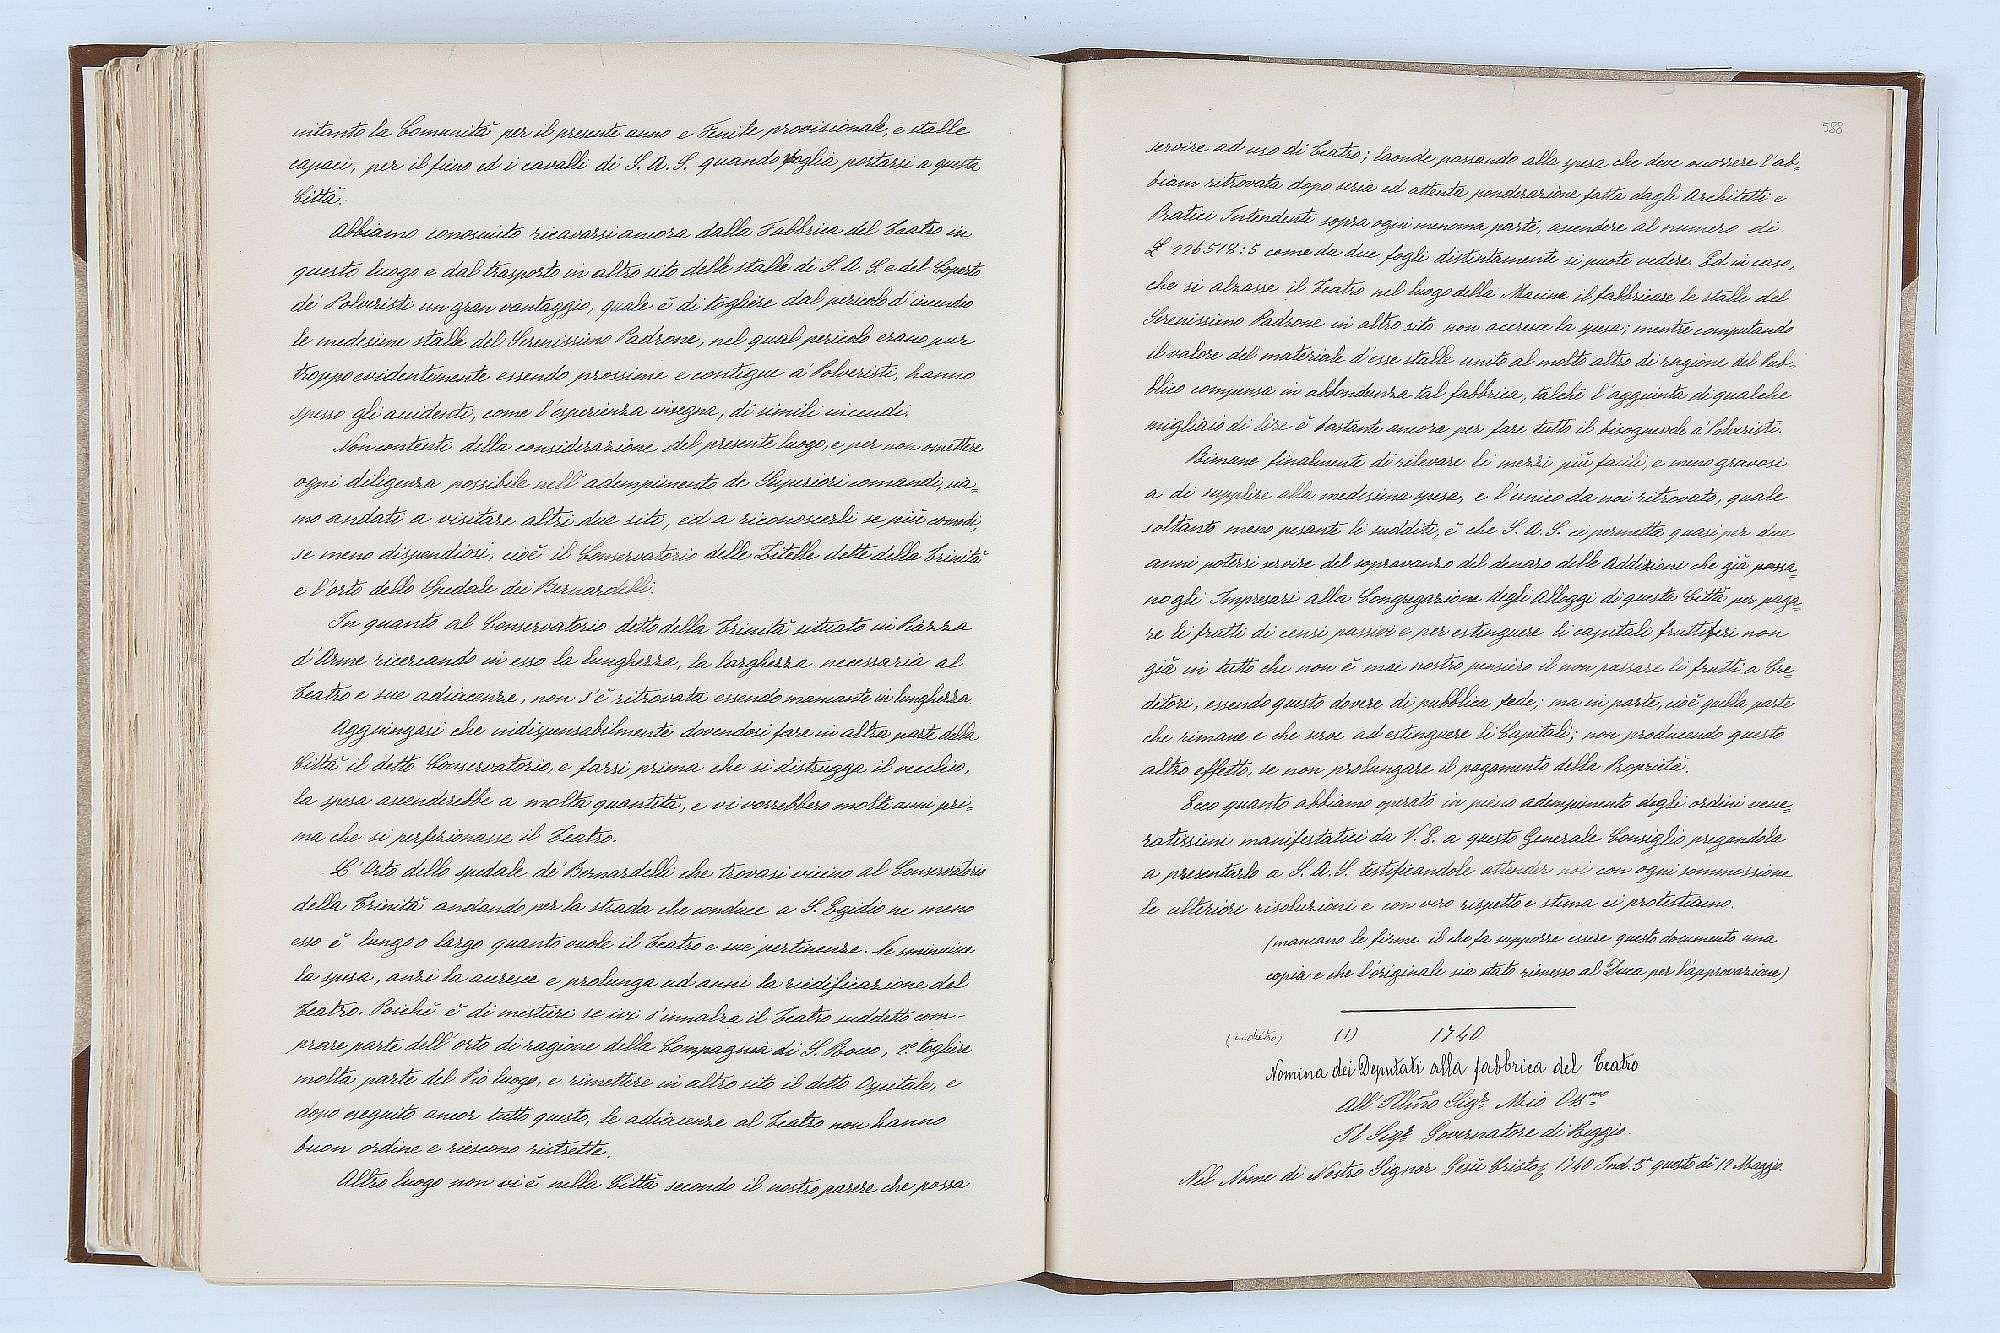 intanto la Comunità per il presente anno e Fenile provisionale, e stalle
capaci, per il fieno ed i cavalli di S. A. S. quando voglia portarsi a questa
Città.
Abbiamo conosciuto ricavarsi ancora dalla Fabbrica del Teatro in
questo luogo e dal trasporto in altro sito delle stalle di S. A. S. e del Coperto
de' Polveristi un gran vantaggio, quale è di togliere dal pericolo d'incendio
le medesime stalle del Serenissimo Padrone, nel qual pericolo erano pur
troppo evidentemente essendo prossime e contigue a' Polveristi, hanno
spesso gli accidenti, come l'esperienza insegna, di simili incendi.
Non contenti della considerazione del presente luogo, e per non omettere
ogni diligenza possibile nell'adempimento de Superiori comandi, sia-
mo andati a visitare altri due siti, ed a riconoscerli se più comodi,
se meno dispendiosi, cioè il Conservatorio delle Zitelle dette della Trinità
e l'orto dello Spedale dei Bernardelli.
In quanto al Conservatorio detto della Trinità situato in Piazza
d'Arme ricercando in esso la lunghezza, la larghezza necessaria al
Teatro e sue adiacenze, non s'è ritrovata essendo mancante in lunghezza
Aggiungasi che indispensabilmente dovendosi fare in altra parte della
Città il detto Conservatorio, e farsi prima che si distrugga il vecchio,
la spesa ascenderebbe a molta quantità, e vi vorrebbero molti anni pri-
ma che si perfezionasse il Teatro.
L'Orto dello spedale de' Bernardelli che trovasi vicino al Conservatorio
della Trinità andando per la strada che conduce a S. Egidio ne meno
esso è lungo o largo quanto vuole il Teatro e sue pertinenze. Ne sminuisce
la spesa, anzi la accresce e prolunga ad anni la riedificazione del
Teatro. Poichè è di mestieri se ivi s'innalza il Teatro suddetto com-
prare parte dell'orto di ragione della Compagnia di S. Rocco, 2° togliere
molta parte del Pio luogo, e rimettere in altro sito il detto Ospitale, e
dopo eseguito ancor tutto questo, le adiacenze al Teatro non hanno
buon ordine e riescono ristrette.
Altro luogo non vi è nella Città secondo il nostro parere che possa
588
servire ad uso di Teatro; laonde passando alla spesa che deve occorrere l'ab-
biam ritrovata dopo seria ed attenta ponderazione fatta dagli Architetti e
Pratici Intendenti sopra ogni menoma parte, ascendere al numero di
£ 226518:5 come da due fogli distintamente si puote vedere. Ed in caso,
che si alzasse il Teatro nel luogo della Macina il fabbricare le stalle del
Serenissimo Padrone in altro sito non accresce la spesa; mentre computando
il valore del materiale d'esse stalle unito al molto altro di ragione del Pub-
blico compensa in abbondanza tal fabbrica, talchè l'aggiunta di qualche
migliaio di lire è bastante ancora per fare tutto il bisognevole a' Polveristi.
Rimane finalmente di rilevare li mezzi più facili, e meno gravosi
a di supplire alla medesima spesa, e l'unico da noi ritrovato, quale
soltanto meno pesante li sudditi, è che S. A. S. ci permetta quasi per due
anni potersi servire del sopravanzo del denaro delle Addizioni che già passa-
no gli Impresari alla Congregazione degli Alloggi di questa Città per paga-
re li frutti di censi passivi e per estinguere li capitali fruttiferi non
già in tutto che non è mai nostro pensiero il non passare li frutti a Cre-
ditori, essendo questo dovere di pubblica fede; ma in parte, cioè quella parte
che rimane e che serve ad estinguere li Capitali; non producendo questo
altro effetto, se non prolungare il pagamento della Proprietà.
Ecco quanto abbiamo operato in pieno adempimento degli ordini vene-
ratissimi manifestatici da V. E. a questo Generale Consiglio pregandola
a presentarlo a S. A. S. testificandole attender noi con ogni sommessione
le ulteriori risoluzioni e con vero rispetto e stima ci protestiamo.
(mancano le firme il che fa supporre essere questo documento una
copia e che l'originale sia stato rimesso al Duca per l'approvazione)
(indietro) (1) 1740
Nomina dei Deputati alla fabbrica del Teatro
All' Illmo Sigr. Mio Ossmo
Il Sigr. Governatore di Reggio.
Nel Nome di Nostro Signor Gesù Cristo 1740 Ind. 3ª questo dì 12 Maggio.